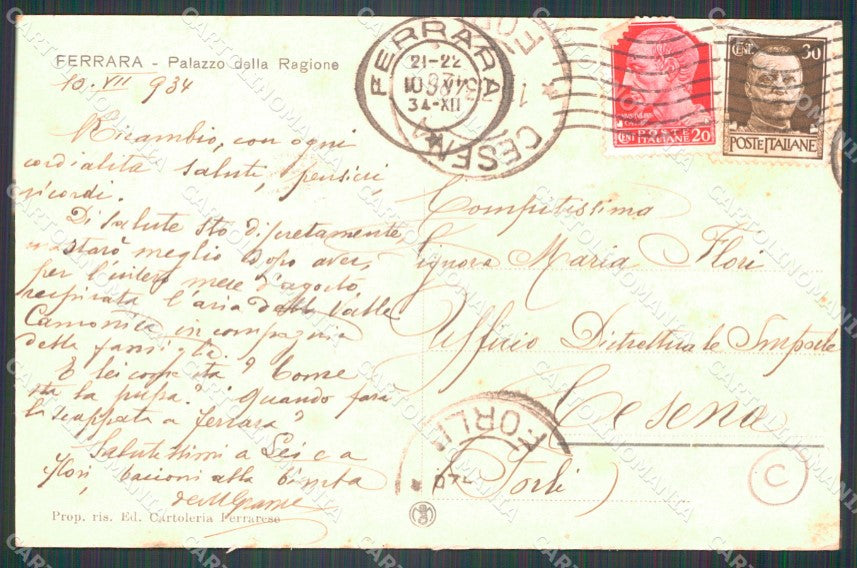 FERRARA - Palazzo della Ragione
10. VII 934
Ricambio, con ogni
cordialità saluti, pensieri,
ricordi.
Di salute sto discretamente,
starò meglio dopo aver,
per l'intero mese d'agosto
respirata l'aria della Valle
Camonica in compagnia
della famiglia.
E lei cosa fa? Come
sta la pupa? Quando farà
la scappata a Ferrara?
Salutissimi a Lei e a
Flori, bacioni alla bimba
Prop. ris. Ed. Cartoleria Ferrarese
FERRARA
21-22
10
34-XII
CESENA
FORLI
CENT. 20
POSTE
ITALIANE
CENT. 30
POSTE ITALIANE
Compitissima
Signora Maria Flori
Ufficio Distrettuale Imposte
Cesena
(Forlì)
FORLI
C
CARTOLINOMANIA